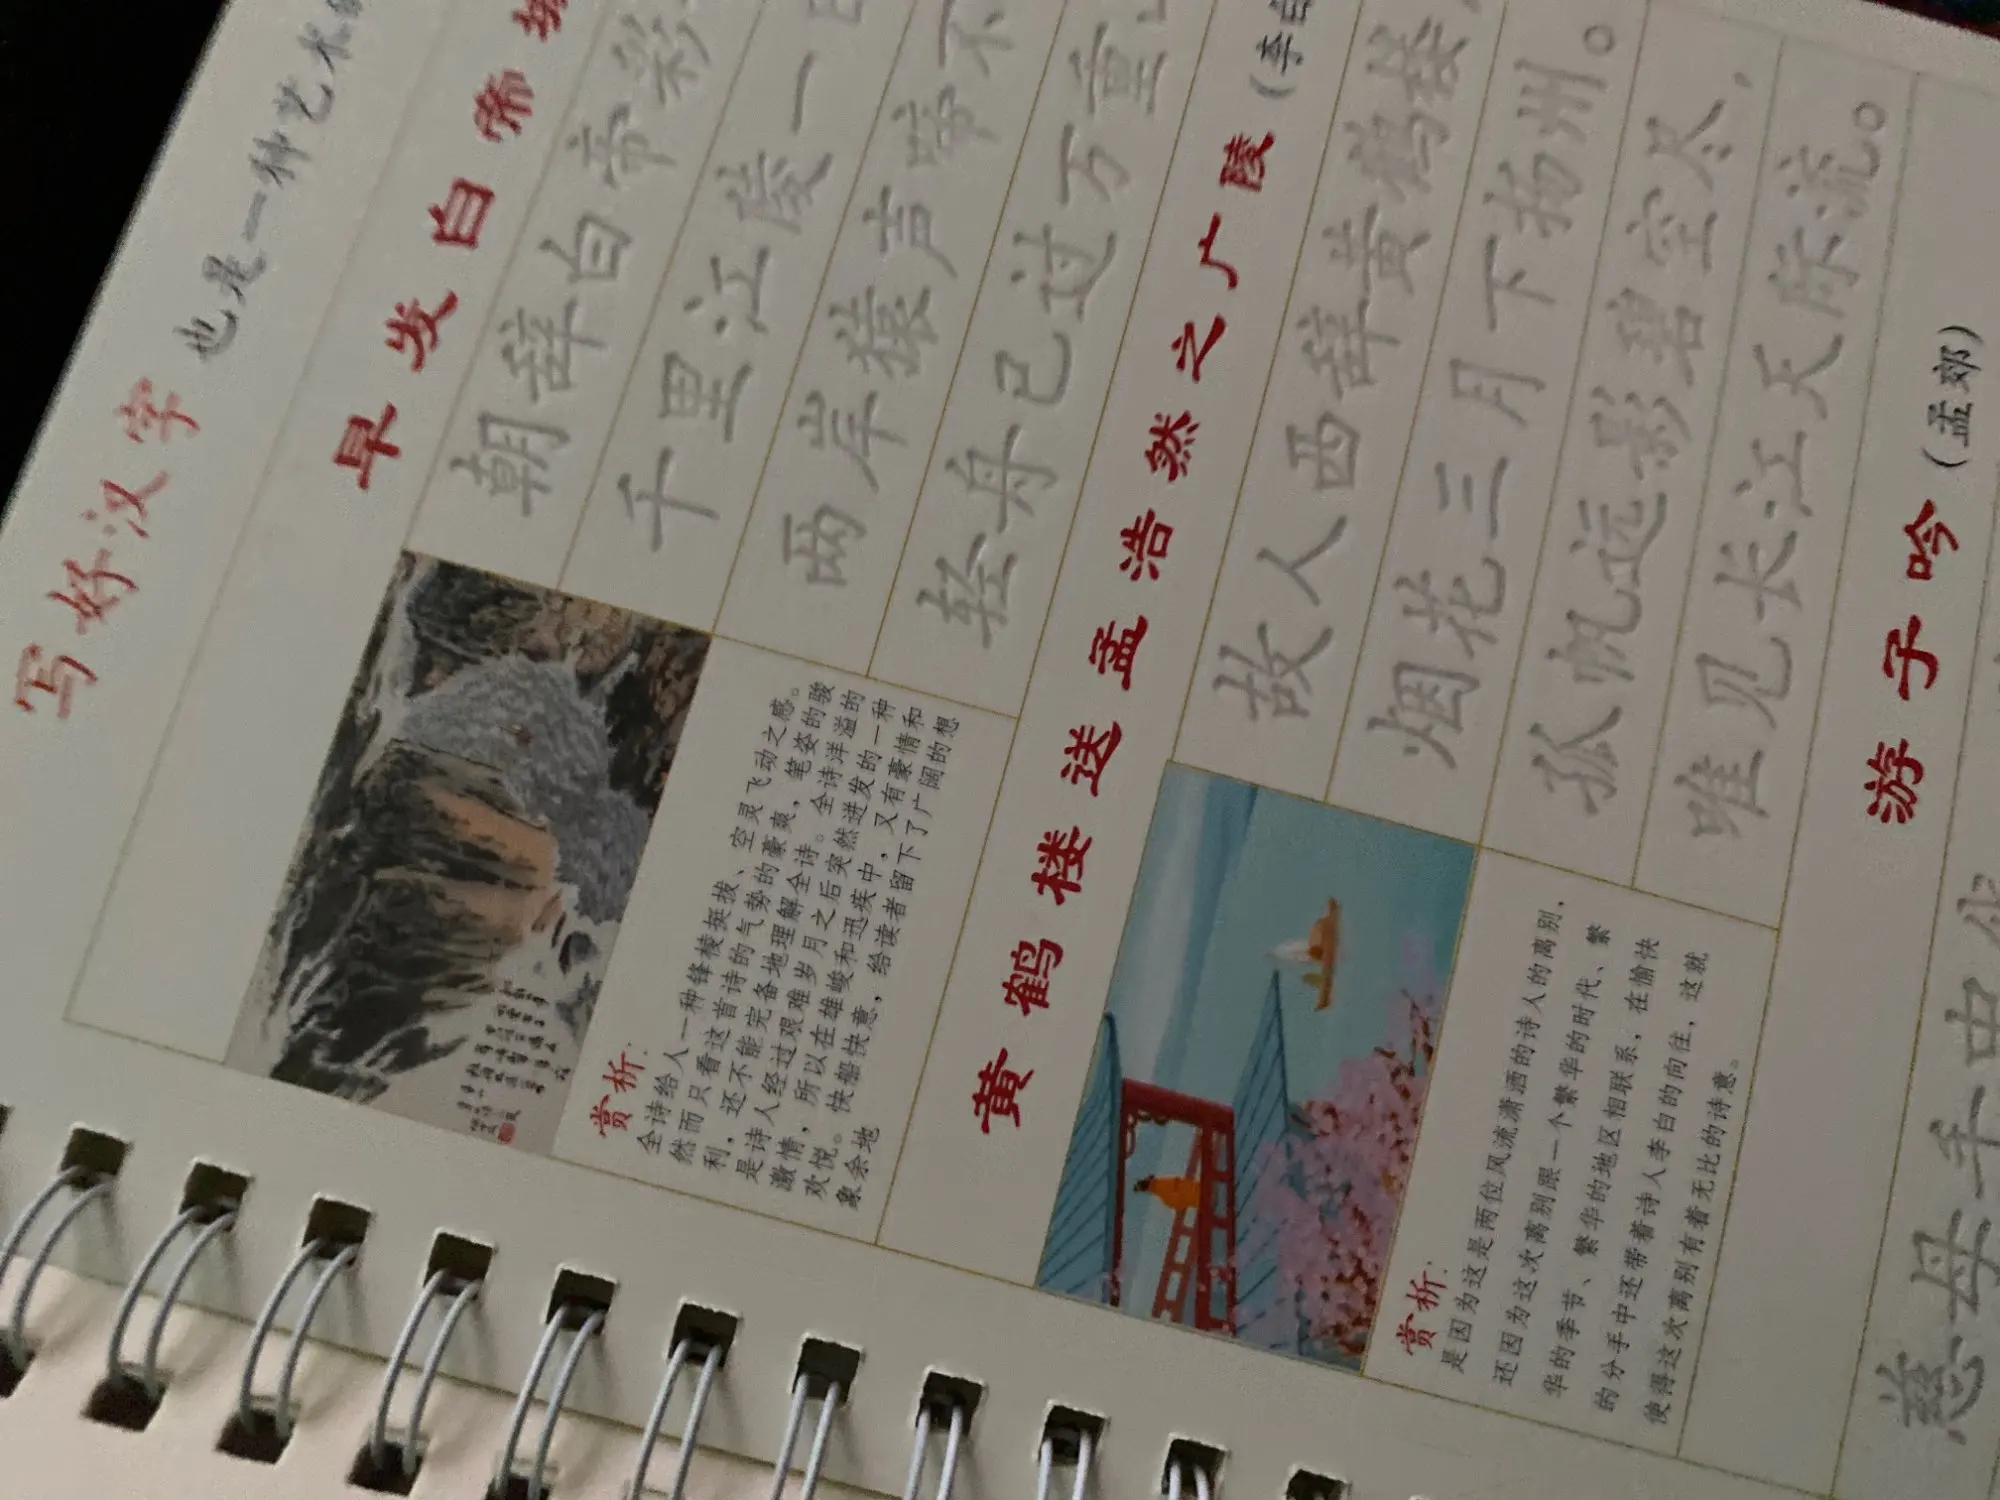 写好汉字 也是一种艺术
早发白帝城
朝辞白帝彩
千里江陵一日
两岸猿声啼不
轻舟已过万重
赏析:
全诗给人一种锋棱挺拔、空灵飞动之感。
然而只看这首诗的气势的豪爽,笔姿的骏
利,还不能完备地理解全诗。全诗洋溢的
是诗人经过艰难岁月之后突然迸发的一种
激情,所以在雄峻和迅疾中,又有豪情和
欢悦。快船快意,给读者留下了广阔的想
象余地
黄鹤楼送孟浩然之广陵 (李白
故人西辞黄鹤楼,
烟花三月下扬州。
孤帆远影碧空尽,
唯见长江天际流。
赏析:
是因为这是两位风流潇洒的诗人的离别,
还因为这次离别跟一个繁华的时代、繁
华的季节、繁华的地区相联系,在愉快
的分手中还带着诗人李白的向往,这就
使得这次离别有着无比的诗意。
游子吟 (孟郊)
慈母手中